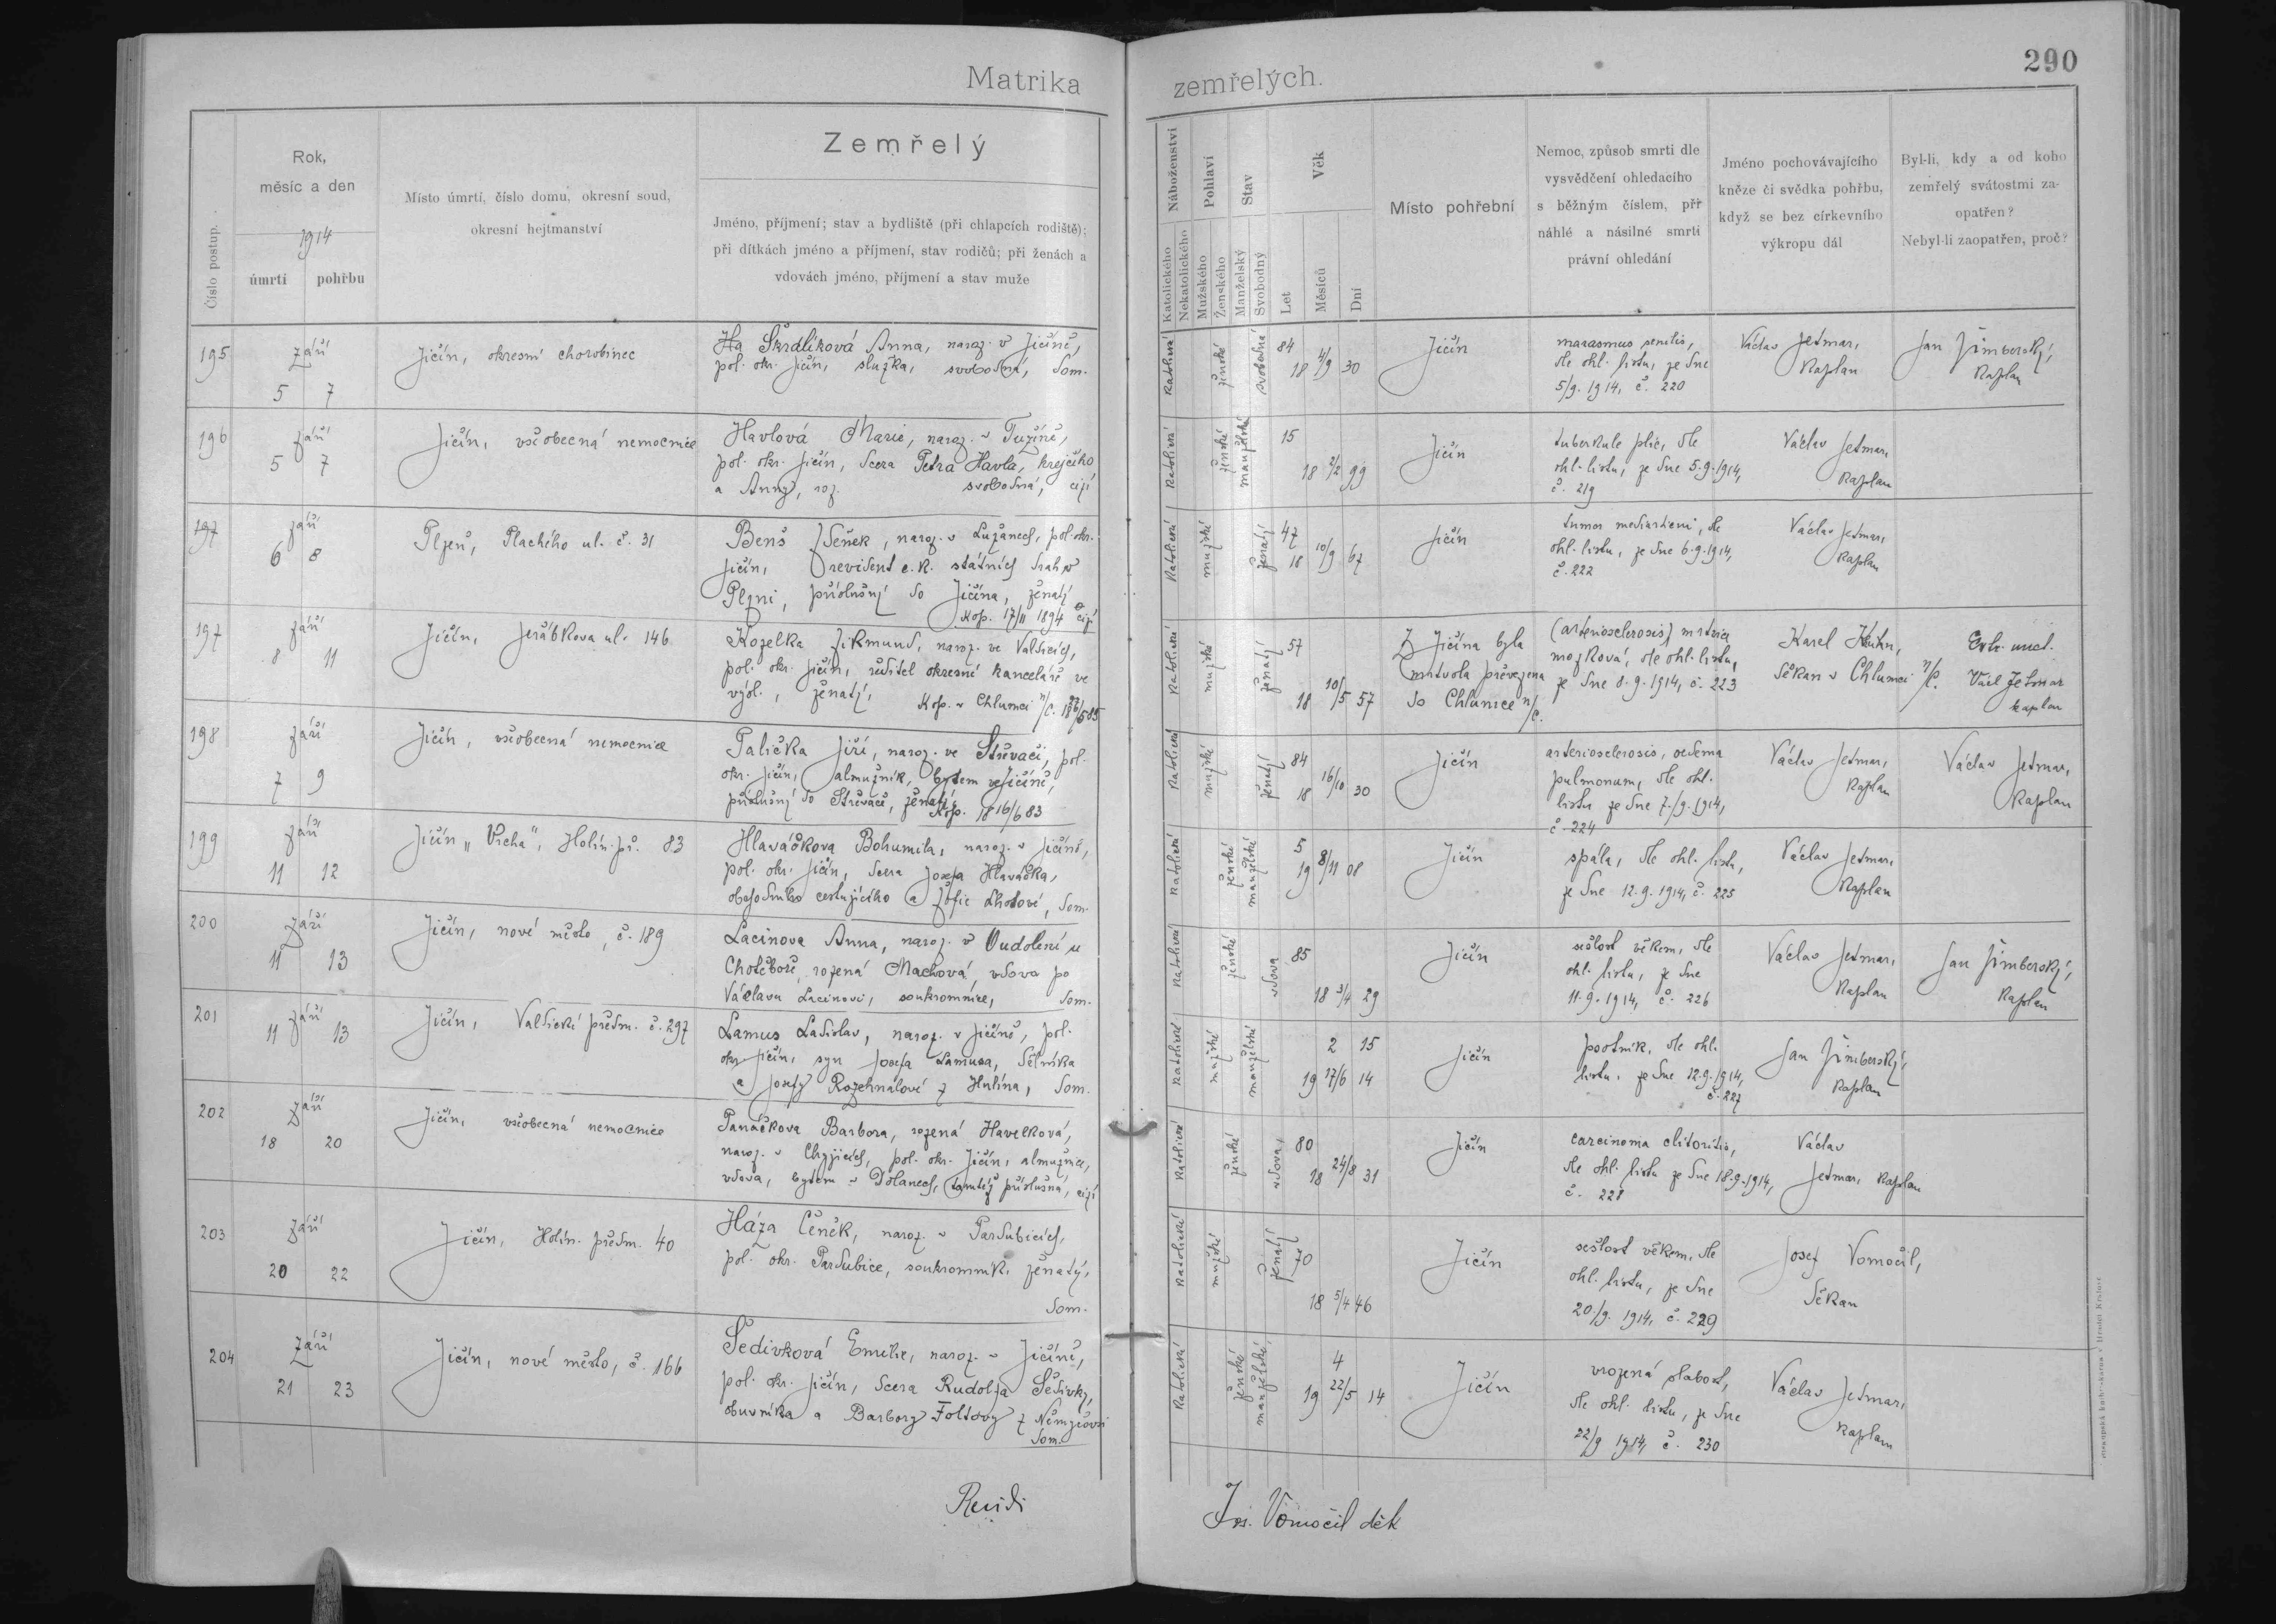 Matrika
zemřelých.
290
Číslo postup.
Rok,
měsíc a den
1914
úmrtí
pohřbu
Místo úmrtí, číslo domu, okresní soud,
okresní hejtmanství
Zemřelý
Jméno, příjmení; stav a bydliště (při chlapcích rodiště);
při dítkách jméno a příjmení, stav rodičů; při ženách a
vdovách jméno, příjmení a stav muže
Náboženství
Katolického
Nekatolického
Pohlaví
Mužského
Ženského
Stav
Manželský
Svobodný
Věk
Let
Měsíců
Dní
Místo pohřební
Nemoc, způsob smrti dle
vysvědčení ohledacího
s běžným číslem, při
náhlé a násilné smrti
právní ohledání
Jméno pochovávajícího
kněze či svědka pohřbu,
když se bez církevního
výkropu dál
Byl-li, kdy a od koho
zemřelý svátostmi za-
opatřen?
Nebyl-li zaopatřen, proč?
195
září
5 7
Jičín, okresní chorobinec
Škrdlíková Anna, naroz. v Jičíně,
pol. okr. Jičín, služka, svobodná, dom.
katolické
ženské
svobodné
84
18 4/9 30
Jičín
marasmus senilis,
dle ohl. listu, ze dne
5/9. 1914, č. 220
Václav Jetmar,
kaplan
Jan Jimberský,
kaplan
196
září
5 7
Jičín, všeobecná nemocnice
Havlová Marie, naroz. v Tužíně,
pol. okr. Jičín, dcera Petra Havla, krejčího
a Anny, roz. svobodná, cizí
katolické
ženské
manželské
15
18 2/2 99
Jičín
tuberkule plic, dle
ohl. listu, ze dne 5.9.1914,
č. 219
Václav Jetmar,
kaplan
197
září
6 8
Plzeň, Plachého ul. č. 31
Beneš Zdeněk, naroz. v Lužanech, pol. okr.
Jičín, revident c.k. státních drah v
Plzni, příslušný do Jičína, ženatý
kop. 17/11 1894 cizí
katolické
mužské
ženatý
47
18 10/9 67
Jičín
tumor mediastieni, dle
ohl. listu, ze dne 6.9.1914,
č. 222
Václav Jetmar,
kaplan
197
září
8 11
Jičín, Jeřábkova ul. 146
Kozelka Zikmund, naroz. ve Valdicích,
pol. okr. Jičín, ředitel okresní kanceláře ve
výsl., ženatý,
kop. v Chlumci n/C. 18 26/5 85
katolické
mužské
ženatý
57
18 10/5 57
Z Jičína byla
mrtvola převezena
do Chlumce n/C.
(arteriosclerosis) mrtvice
mozková, dle ohl. listu,
ze dne 8.9.1914, č. 223
Karel Kuhn,
děkan v Chlumci n/C.
Extr. unct.
Václ Jetmar
kaplan
198
září
7 9
Jičín, všeobecná nemocnice
Palička Jiří, naroz. ve Střevači, pol.
okr. Jičín, almužník, bytem v Jičíně,
příslušný do Střevače, ženatý,
kop. 18 16/6 83
katolické
mužské
ženatý
84
18 16/10 30
Jičín
arteriosclerosis, oedema
pulmonum, dle ohl.
listu ze dne 7./9. 1914,
č. 224
Václav Jetmar,
kaplan
Václav Jetmar,
kaplan
199
září
11 12
Jičín „Vrcha", Holín. př. 83
Hlaváčkova Bohumila, naroz. v Jičíně,
pol. okr. Jičín, dcera Josefa Hlaváčka,
obchodníka cestujícího a Žofie Lhotové, dom.
katolické
ženské
manželské
5
19 8/11 08
Jičín
spála, dle ohl. listu,
ze dne 12.9.1914, č. 225
Václav Jetmar,
kaplan
200
září
11 13
Jičín, nové město, č. 189
Lacinova Anna, naroz. v Oudoleni u
Chotěboře, rozená Machová, vdova po
Václavu Lacinovi, soukromnice, dom.
katolické
ženské
vdova
85
18 3/4 29
Jičín
sešlost věkem, dle
ohl. listu, ze dne
11.9.1914, č. 226
Václav Jetmar,
kaplan
Jan Jimberský,
kaplan
201
září
11 13
Jičín, Valdické předm. č. 297
Lamus Ladislav, naroz. v Jičíně, pol.
okr. Jičín, syn Josefa Lamusa, dělníka
a Josefy Rozehnálové z Hulína, dom.
katolické
mužské
manželské
2 15
19 17/6 14
Jičín
psotník, dle ohl.
listu, ze dne 12.9.1914,
č. 227
Jan Jimberský,
kaplan
202
září
18 20
Jičín, všeobecná nemocnice
Panáčkova Barbora, rozená Havelková,
naroz. v Chyjicích, pol. okr. Jičín, almužnice,
vdova, bytem v Dolanech, tamtéž příslušná, cizí
katolické
ženské
vdova,
80
18 24/8 31
Jičín
carcinoma clitoritis,
dle ohl. listu ze dne 18.9.1914,
č. 228
Václav
Jetmar, kaplan
203
září
20 22
Jičín, Holín. předm. 40
Háza Čeněk, naroz. v Pardubicích,
pol. okr. Pardubice, soukromník, ženatý,
dom.
katolické
mužské
ženatý
70
18 5/4 46
Jičín
sešlost věkem, dle
ohl. listu, ze dne
20./9. 1914, č. 229
Josef Vomočil,
děkan
204
září
21 23
Jičín, nové město, č. 166
Šedivková Emilie, naroz. v Jičíně,
pol. okr. Jičín, dcera Rudolfa Šedivky,
obuvníka a Barbory Foltovy z Němyčovsi
dom.
katolické
ženské
manželské,
4
19 22/5 14
Jičín
vrozená slabost,
dle ohl. listu, ze dne
22/9 1914, č. 230
Václav Jetmar,
kaplan
Revidi
Jos. Vomočil děk